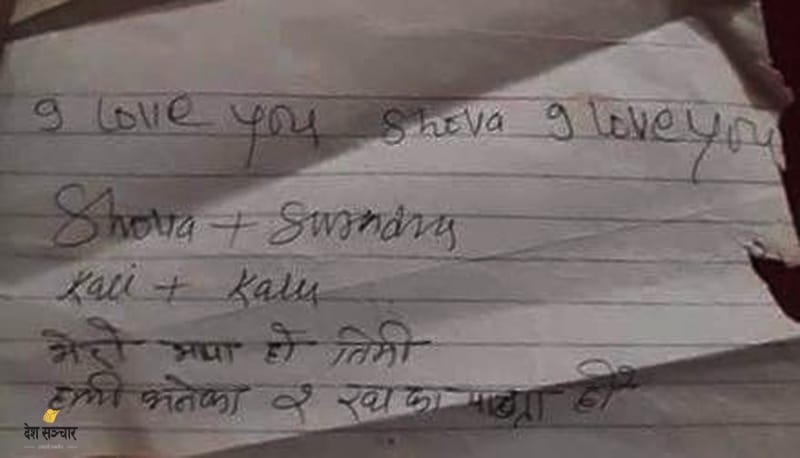 I love you Shova I love you
Shova + Surendra
Kali + Kalu
मेरो मया हो तिमी
हामी अनेका २ रुवा का पाहुना हौ
देश सञ्चार